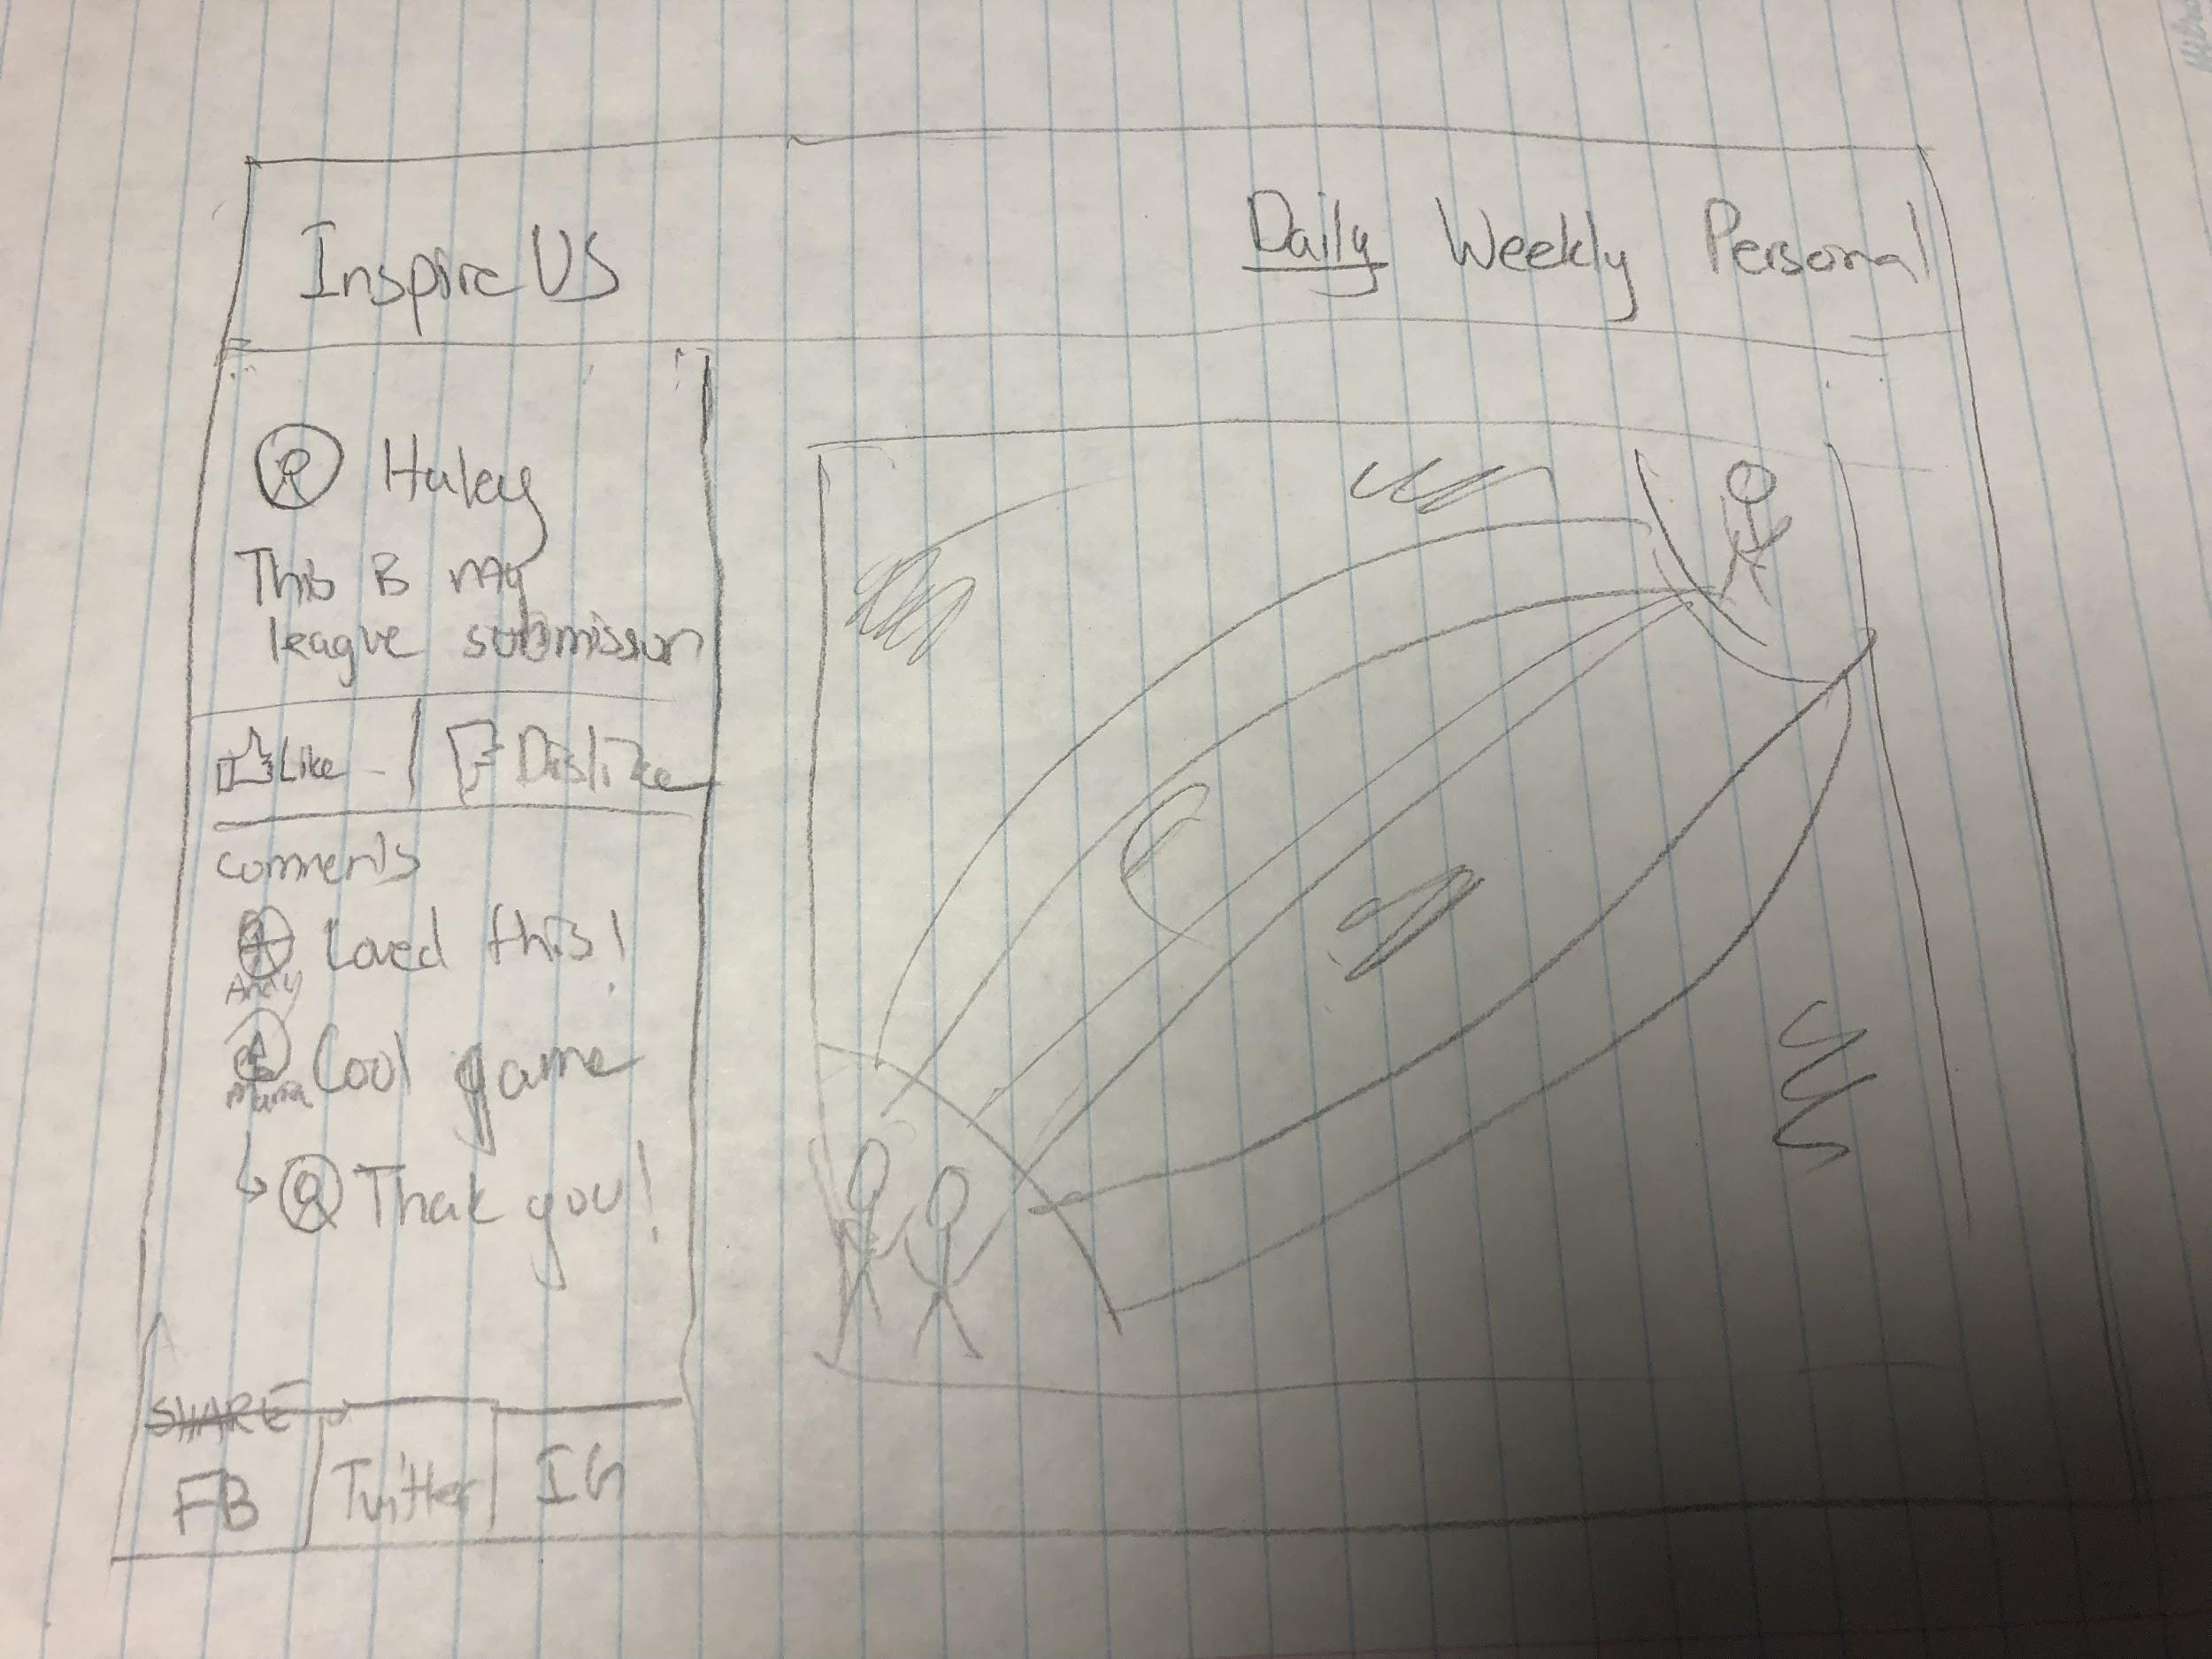 Inspire US
Daily Weekly Personal
Haley
This is my
league submisson
Like
Dislike
comments
Loved this!
Andy
Cool game
Maria
Thak you!
SHARE
FB
Twitter
IG